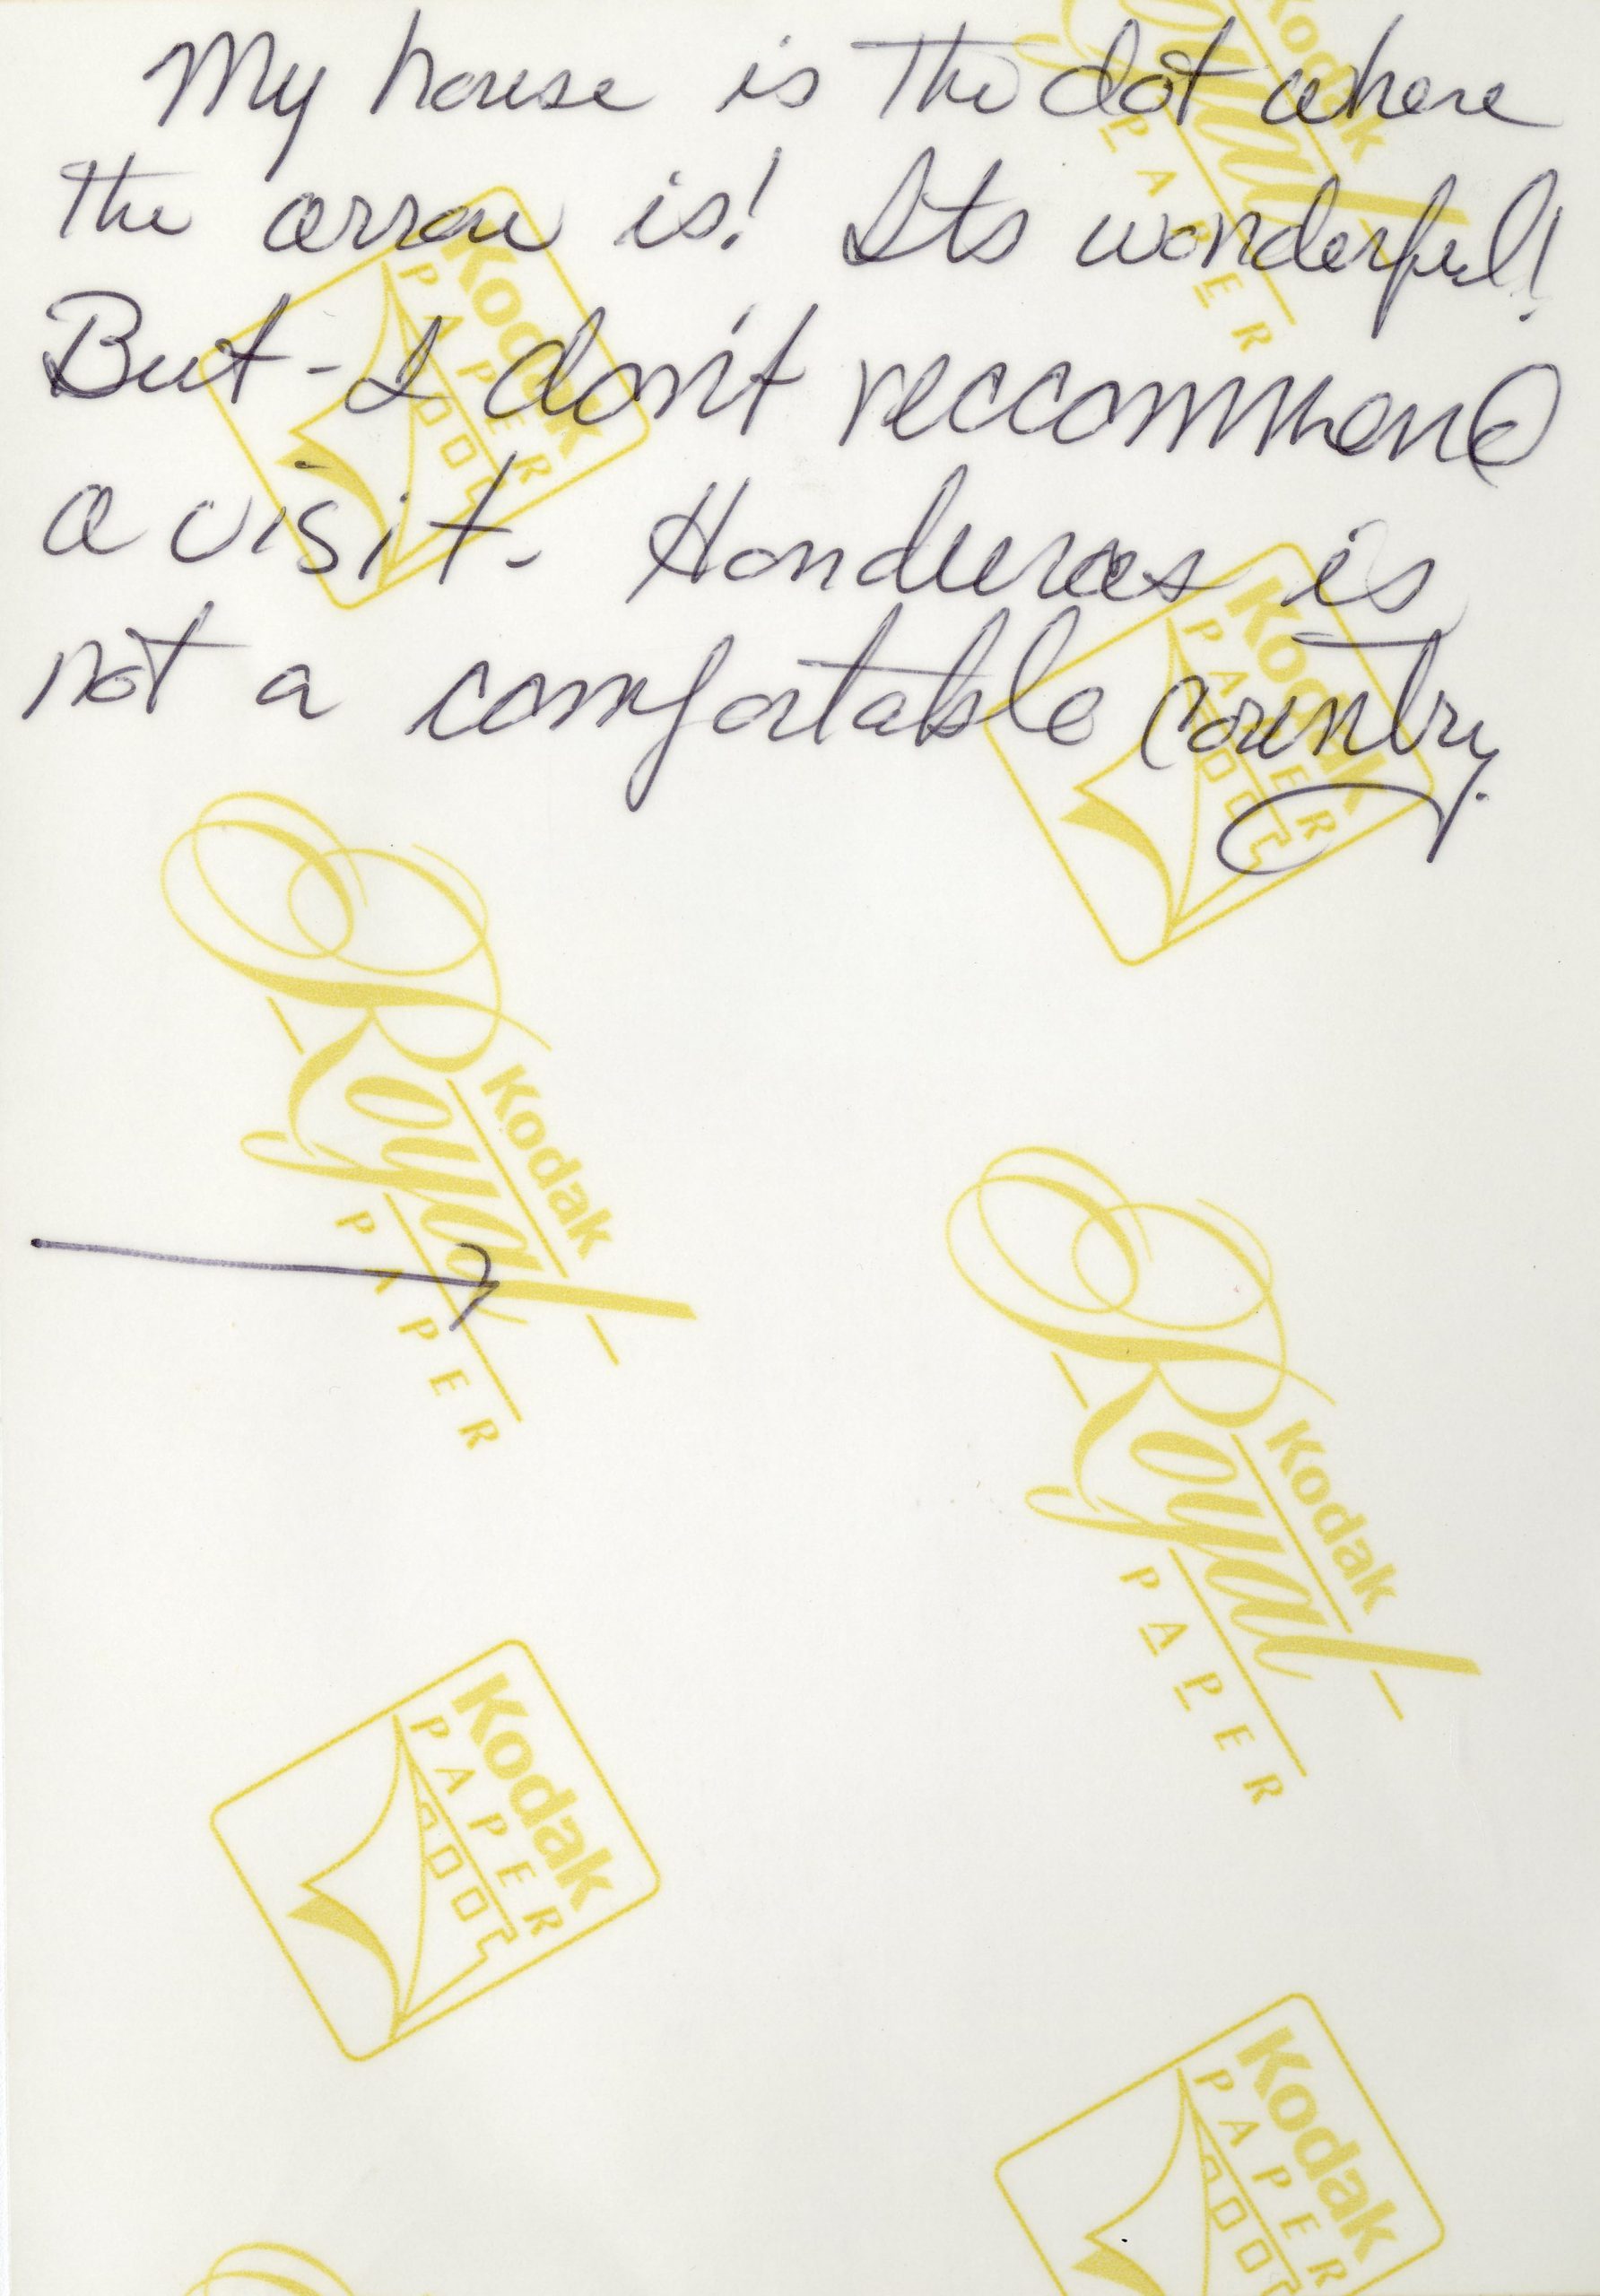 My house is the dot where
the arrow is! Its wonderful!
But - I don't reccommend
a visit. Honduras is
not a comfortable country.
Kodak
Royal
PAPER
Kodak
PAPER
Kodak
PAPER
Kodak
Royal
PAPER
Kodak
Royal
PAPER
Kodak
PAPER
Kodak
PAPER